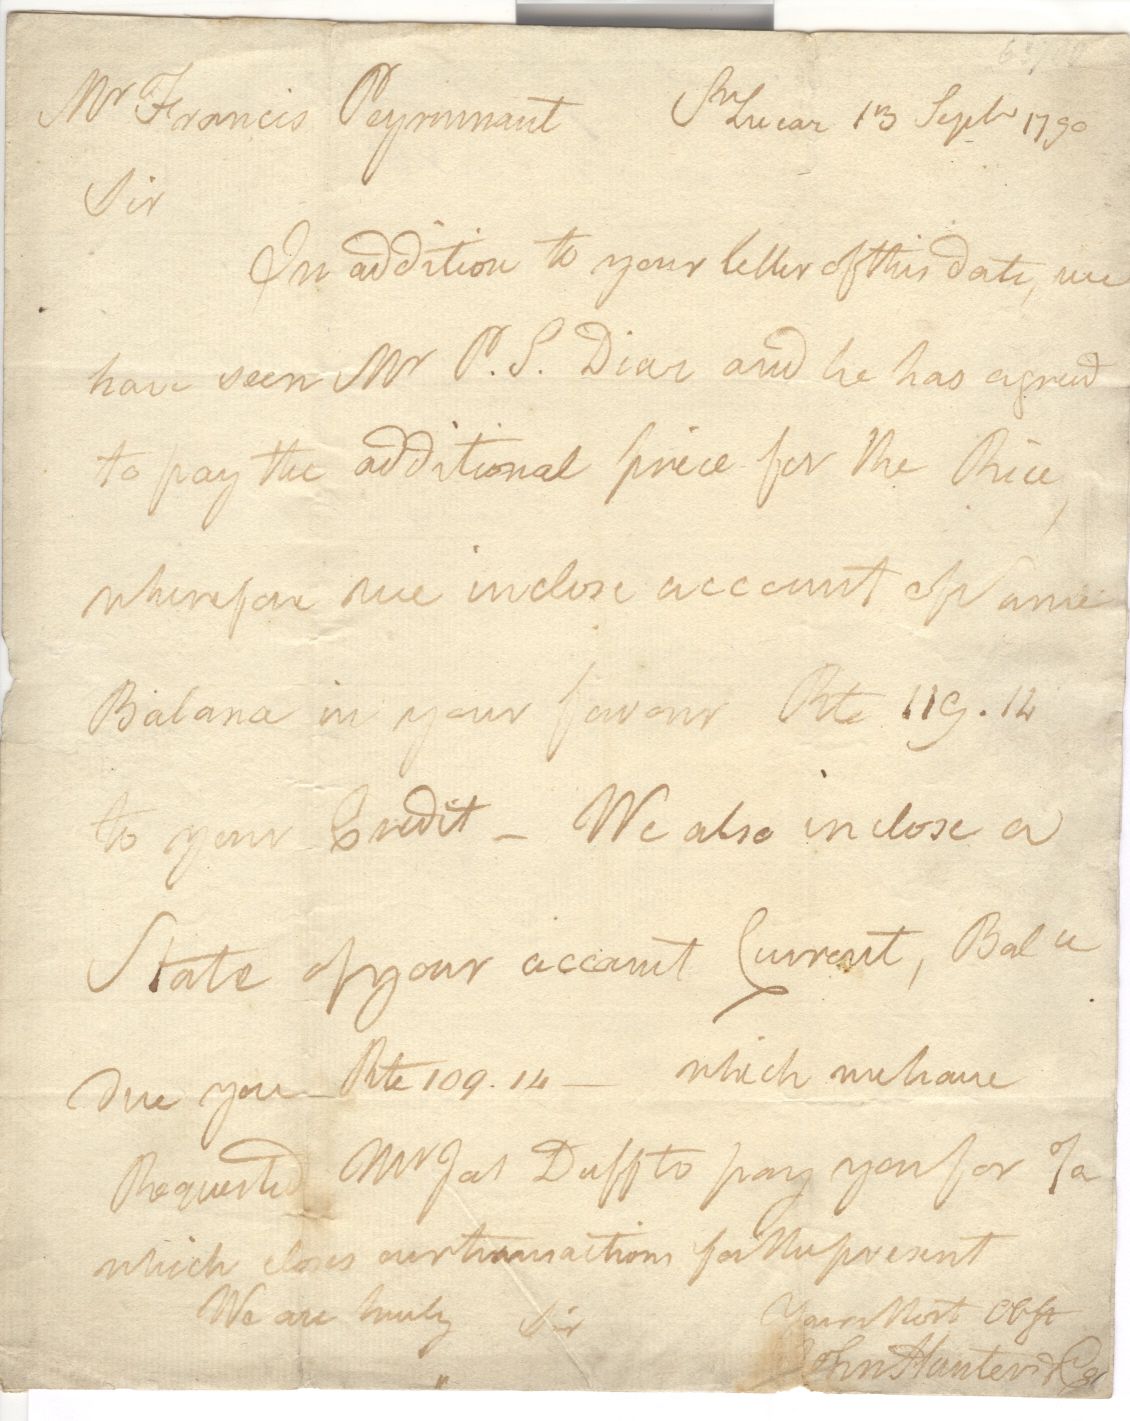 Mr Francis Peynnnant Sn Lucar 13 Septr 1790
Sir
In addition to your letter of this date, we
have seen Mr P. S. Diaz and he has agreed
to pay the additional price for the Rice,
wherefore we inclose account of Same
Balance in your favour Rte 119.14
to your Credit _ We also inclose a
State of your account Current, Balce
due you _ Rte 109.14 — which we have
Requested Mr Jas Duff to pay you for o/a
which closes our transactions for the present
We are truly Sir Yours Most Obft
John Hunter & Co